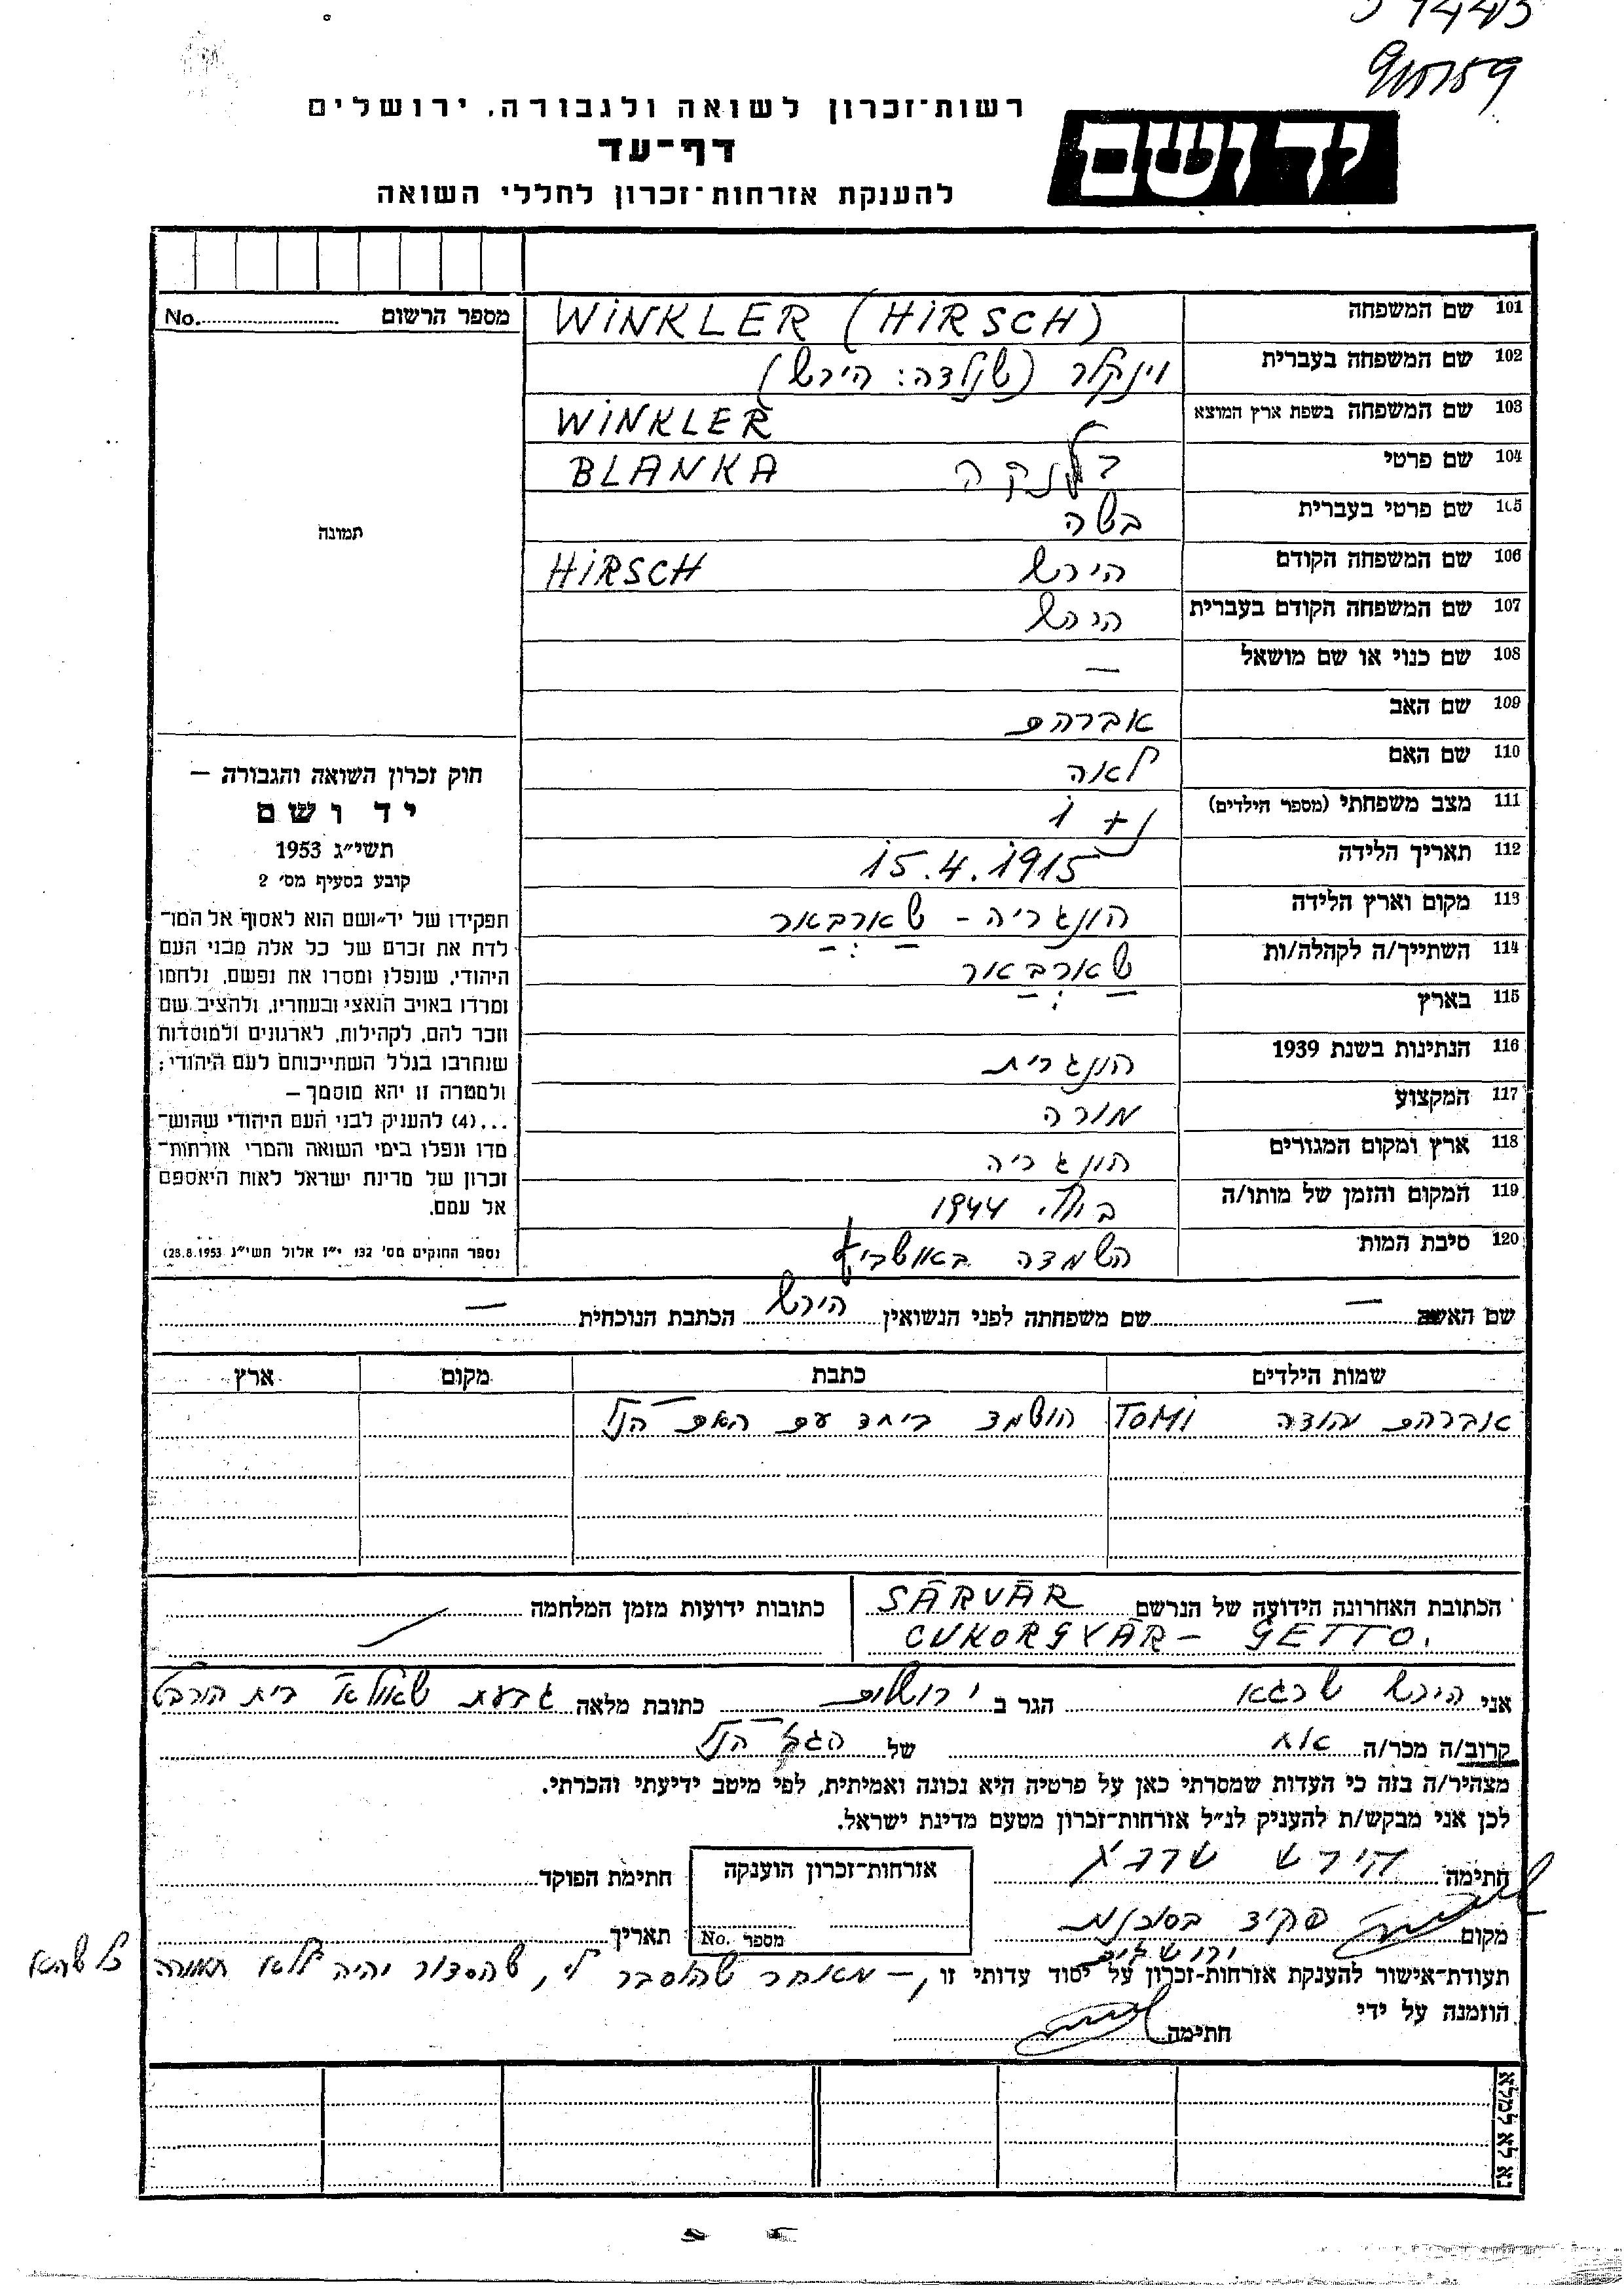 רשות־זכרון לשואה ולגבורה, ירושלים
דף־עד
להענקת אזרחות־זכרון לחללי השואה
יד ושם
מספר הרשום No.
תמונה
101 שם המשפחה WINKLER (HIRSCH)
102 שם המשפחה בעברית וינקלר (שנולדה: הירש)
103 שם המשפחה בשפת ארץ המוצא WINKLER
104 שם פרטי בלנקה BLANKA
105 שם פרטי בעברית
106 שם המשפחה הקודם הירש HIRSCH
107 שם המשפחה הקודם בעברית הירש
108 שם כנוי או שם מושאל —
109 שם האב אברהם
110 שם האם לאה
111 מצב משפחתי (מספר הילדים) נ + 1
112 תאריך הלידה 15.4.1915
113 מקום וארץ הלידה הונגריה - שארבאר
114 השתייך/ה לקהלה/ות שארבאר
115 בארץ
116 הנתינות בשנת 1939 הונגרית
117 המקצוע מורה
118 ארץ ומקום המגורים הונגריה
119 המקום והזמן של מותו/ה ביולי 1944
120 סיבת המות השמדה באושביץ
חוק זכרון השואה והגבורה —
יד ושם
תשי״ג 1953
קובע בסעיף מס׳ 2
תפקידו של יד־ושם הוא לאסוף אל המו־
לדת את זכרם של כל אלה מבני העם
היהודי, שנפלו ומסרו את נפשם, נלחמו
ומרדו באויב הנאצי ובעוזריו, ולהציב שם
וזכר להם, לקהילות, לארגונים ולמוסדות
שנחרבו בגלל השתייכותם לעם היהודי;
ולמטרה זו יהא מוסמך —
...(4) להעניק לבני העם היהודי שהוש־
מדו ונפלו בימי השואה והמרי אזרחות־
זכרון של מדינת ישראל לאות היאספם
אל עמם.
(ספר החוקים מס׳ 132 י״ז אלול תשי״ג 28.8.1953)
שם האשה — שם משפחתה לפני הנשואין הירש הכתבת הנוכחית —
שמות הילדים כתבת מקום ארץ
אברהם יהודה TOMI הושמד ביחד עם האם הנ״ל
הכתובת האחרונה הידועה של הנרשם SÁRVÁR
CUKORGYÁR - GETTO.
כתובות ידועות מזמן המלחמה
אני הירש שרגא הגר ב ירושלים כתובת מלאה גבעת שאול א׳ בית הורביץ
קרוב/ה מכר/ה אח של הגב׳ הנ״ל
מצהיר/ה בזה כי העדות שמסרתי כאן על פרטיה היא נכונה ואמיתית, לפי מיטב ידיעתי והכרתי.
לכן אני מבקש/ת להעניק לנ״ל אזרחות־זכרון מטעם מדינת ישראל.
חתימה הירש שרגא
אזרחות־זכרון הוענקה
חתימת הפוקד
מקום פקיד בסוכנות
ירושלים
מספר No.
תאריך
תעודת־אישור להענקת אזרחות־זכרון על יסוד עדותי זו, — מאחר שהוסבר לי, שהסדור יהיה ללא תמורה כל שהיא
הוזמנה על ידי
חתימה
נא לא למלא